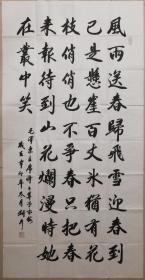 風雨送春歸飛雪迎春到
已是懸崖百丈冰猶有花
枝俏俏也不爭春只把春
來報待到山花爛漫時她
在叢中笑
毛澤東主席詩卜算子咏梅
歲在辛卯年冬月